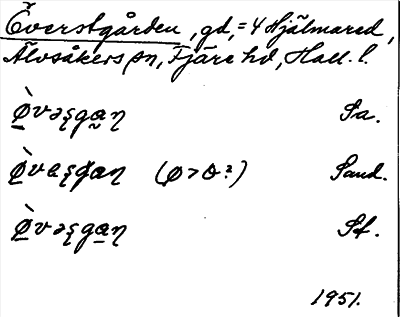 Överstgården, gd, = 4 Hjälmared,
Älvsåkers sn, Fjäre hd, Hall. l.
ø̀vəʂgan Sa.
ø̀vaʂgan (ø > ɵ ?) Sand.
ø̀vəʂgan Sf.
1951.